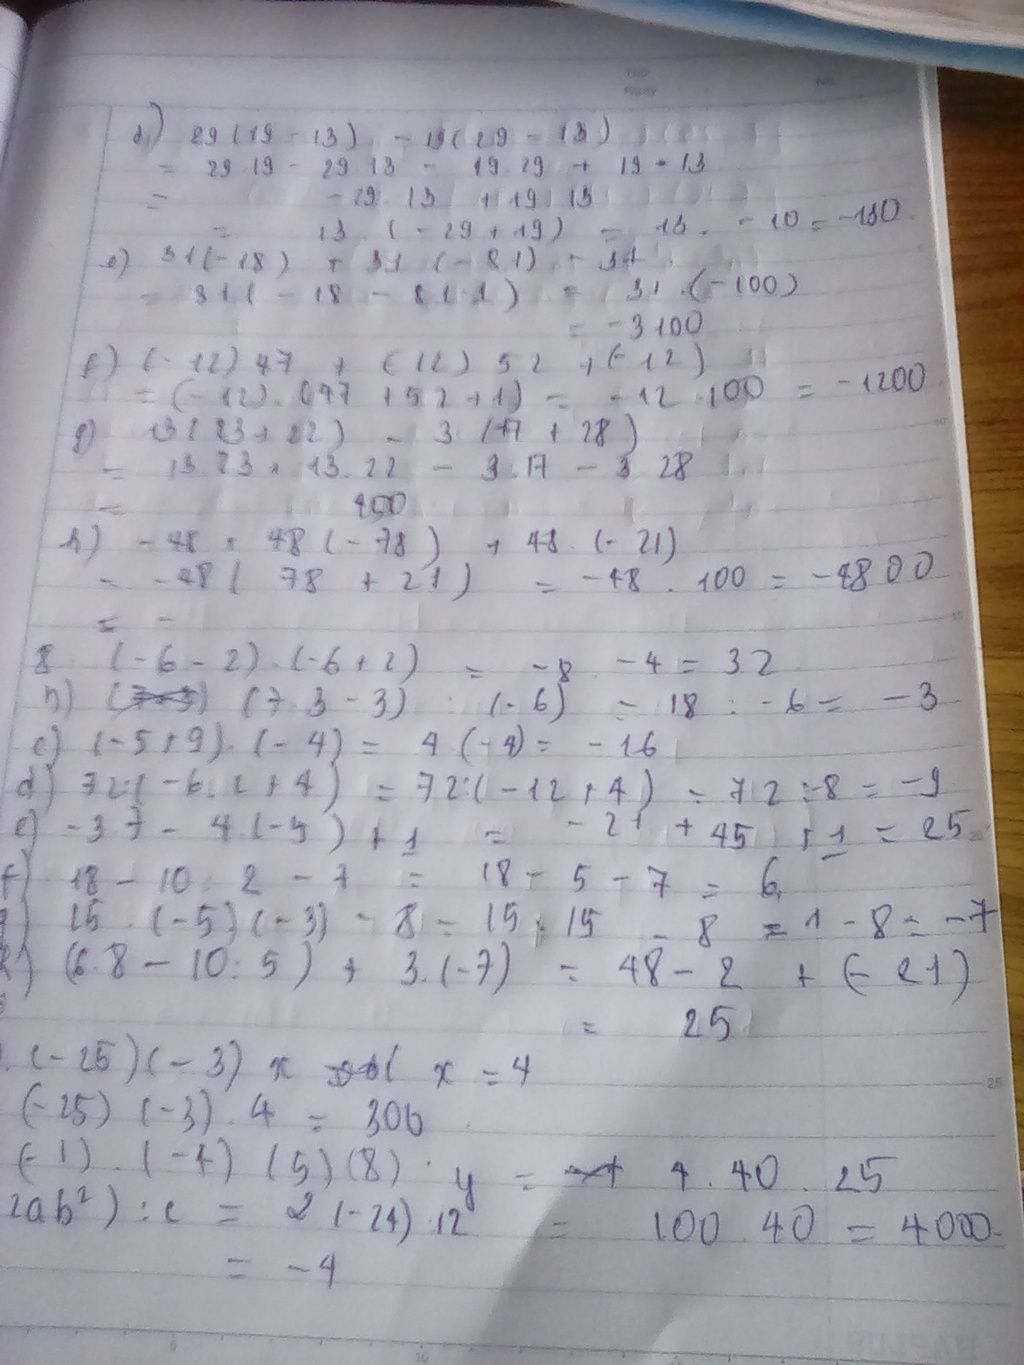 d) 29(19 - 13) - 19(29 - 13)
= 29.19 - 29.13 - 19.29 + 19.13
= -29.13 + 19.13
= 13.(-29+19) = 13. -10 = -130
e) 31(-18) + 31(-81) - 31
= 31(-18 - 81-1) = 31.(-100)
= -3100
f) (-12)47 + (12)52 + (-12)
= (-12).(47 + 52 + 1) = -12.100 = -1200
g) 13(23+22) - 3(17+28)
= 13.23 + 13.22 - 3.17 - 3.28
=
h) -48 + 48(-78) + 48.(-21)
= -48( 78 + 21) = -48.100 = -4800
= -
8 (-6-2).(-6+2) = -8 -4 = 32
(7.3-3) : (-6) = 18 : -6 = -3
c) (-5+9).(-4) = 4.(-4) = -16
d) 72:(-6.2+4) = 72:(-12+4) = 72:-8 = -9
e) -37 - 4.(-5) + 1 = -21 + 45 + 1 = 25
f) 18 - 10 : 2 - 7 = 18 - 5 - 7 = 6
15 : (-5)(-3) - 8 = 15 : 15 - 8 = 1 - 8 = -7
(6.8 - 10:5) + 3.(-7) = 48 - 2 + (-21)
= 25
(-25)(-3) x x = 4
(-25)(-3).4 = 300
(-1).(-4)(5)(8).y = 4.40.25
2ab²):c = 2(-24).12 = 100.40 = 4000
= -4